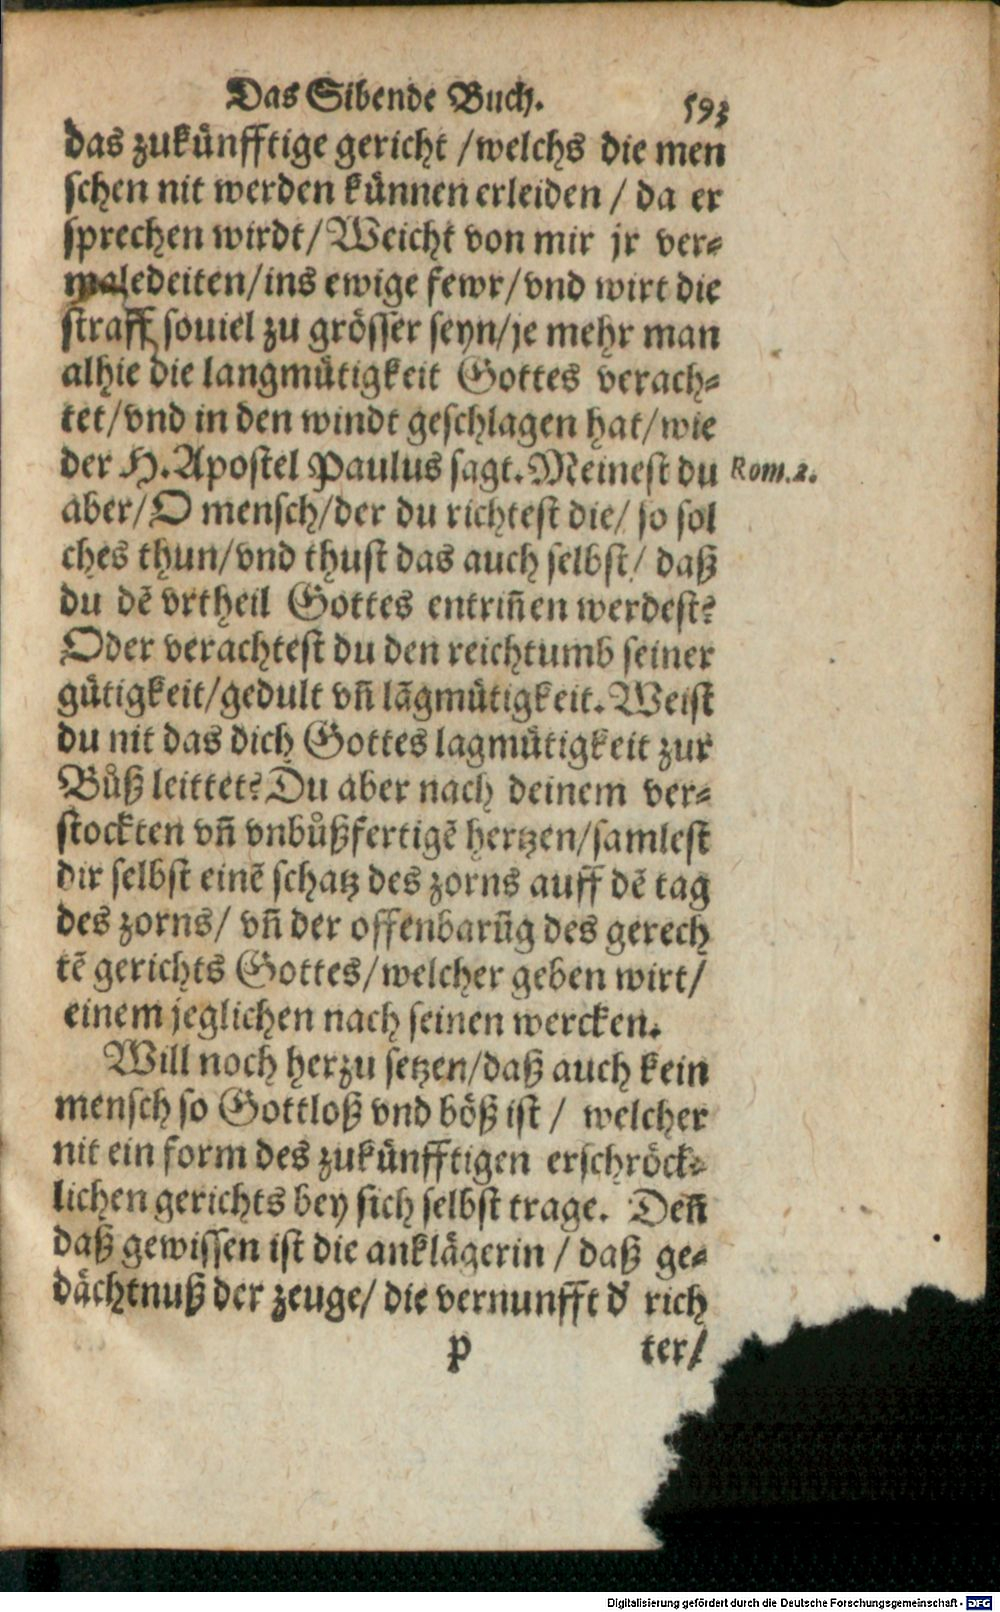 Das Sibende Buch. 593
das zukünfftige gericht / welchs die men
schen nit werden künnen erleiden / da er
sprechen wirdt / Weicht von mir jr ver-
maledeiten / ins ewige fewr / vnd wirt die
straff souiel zu grösser seyn / je mehr man
alhie die langmütigkeit Gottes verach-
tet / vnd in den windt geschlagen hat / wie
der H. Apostel Paulus sagt. Meinest du Rom. 2.
aber / O mensch / der du richtest die / so sol
ches thun / vnd thust das auch selbst / daß
du dē vrtheil Gottes entriñen werdest?
Oder verachtest du den reichtumb seiner
gütigkeit / gedult vñ lãgmütigkeit. Weist
du nit das dich Gottes lagmütigkeit zur
Bůß leittet? Du aber nach deinem ver-
stockten vñ vnbůßfertigē hertzen / samlest
dir selbst einē schatz des zorns auff dē tag
des zorns / vñ der offenbarũg des gerech
tē gerichts Gottes / welcher geben wirt /
einem jeglichen nach seinen wercken.
Will noch herzu setzen / daß auch kein
mensch so Gottloß vnd böß ist / welcher
nit ein form des zukünfftigen erschröck-
lichen gerichts bey sich selbst trage. Deñ
daß gewissen ist die anklägerin / daß ge-
dächtnuß der zeuge / die vernunfft d' rich
P ter /
Digitalisierung gefördert durch die Deutsche Forschungsgemeinschaft - DFG